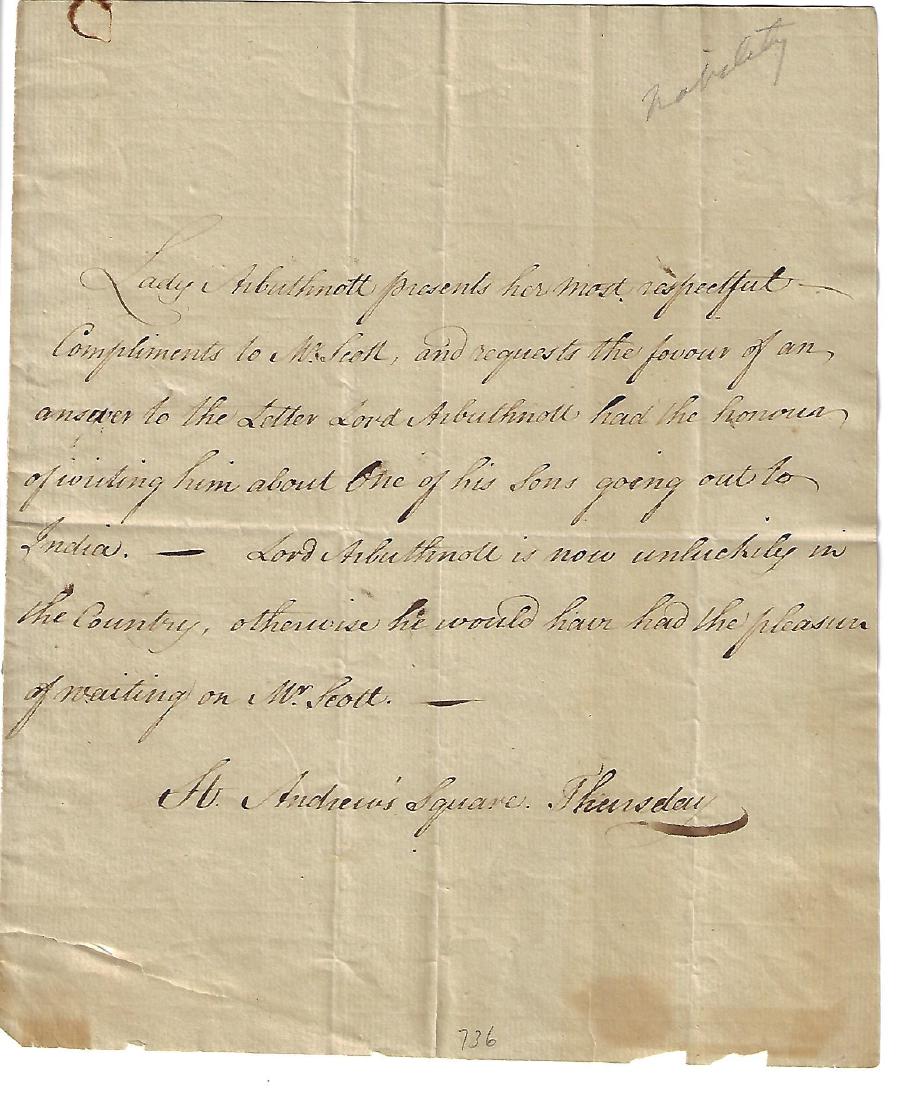 Nobility
Lady Arbuthnott presents her most respectful
Compliments to Mr. Scott, and requests the favour of an
answer to the Letter Lord Arbuthnott had the honour
of writing him about One of his Sons going out to
India. — Lord Arbuthnott is now unluckily in
the Country, otherwise he would have had the pleasure
of waiting on Mr. Scott. —
St. Andrew's Square. Thursday
736